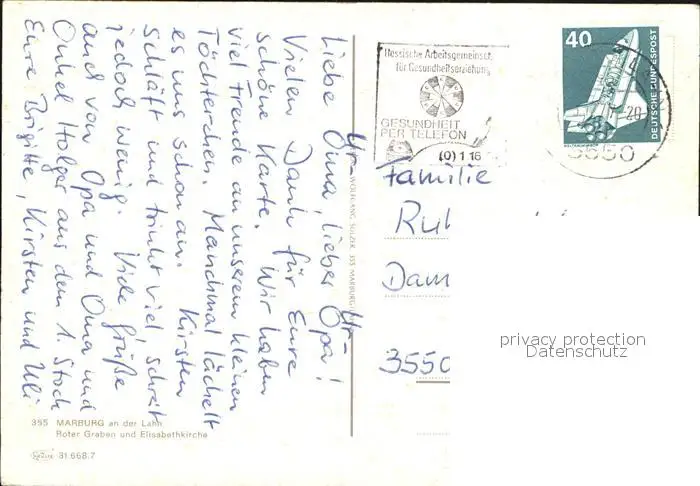 Ur- Ur-
Liebe Oma, lieber Opa!
Vielen Dank für Eure
schöne Karte. Wir haben
viel Freude an unserem kleinen
Töchterchen. Manchmal lächelt
es uns schon an. Kirsten
schläft und trinkt viel, schreit
jedoch wenig. Viele Grüße
auch von Opa und Oma und
Onkel Holger aus dem 1. Stock
Eure Brigitte, Kirsten und Uli
355 MARBURG an der Lahn
Roter Graben und Elisabethkirche
31 668.7
WOLFGANG SULZER, 355 MARBURG
Hessische Arbeitsgemeinsch
für Gesundheitserziehung
GESUNDHEIT
PER TELEFON
(0) 1 16
40
DEUTSCHE BUNDESPOST
3550
Familie
Dam
3550
privacy protection
Datenschutz